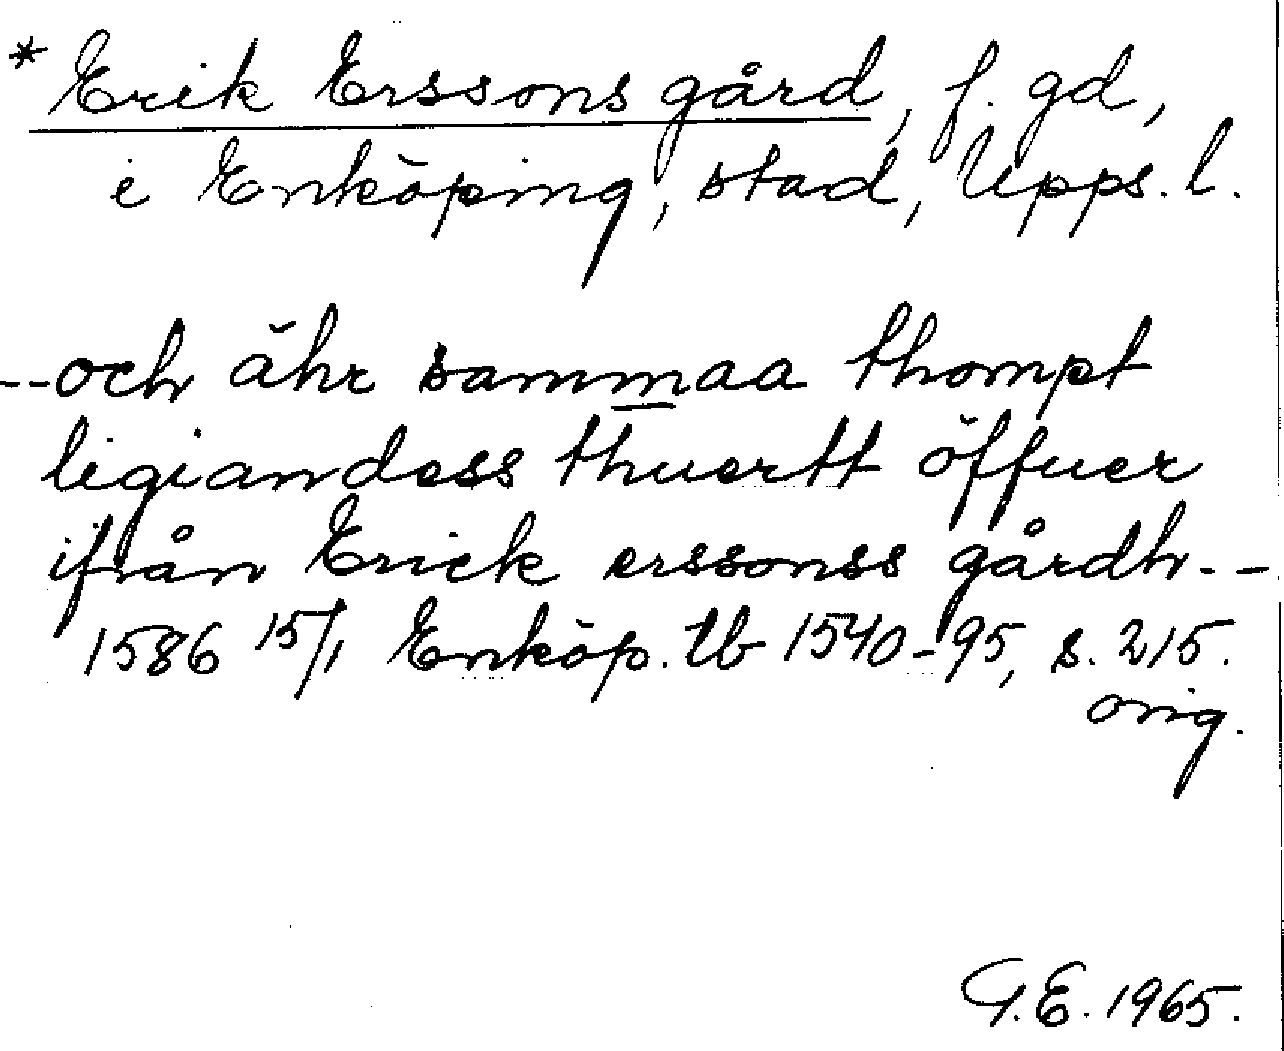 * Erik Erssons gård, f. gd,
i Enköping, stad, Upps. l.
--och ähr sammaa thompt
ligiandess thuertt öffuer
ifrån Erick erssonss gårdh--
1586 15/1 Enköp. tb 1540-95, s. 215.
orig.
G.E. 1965.